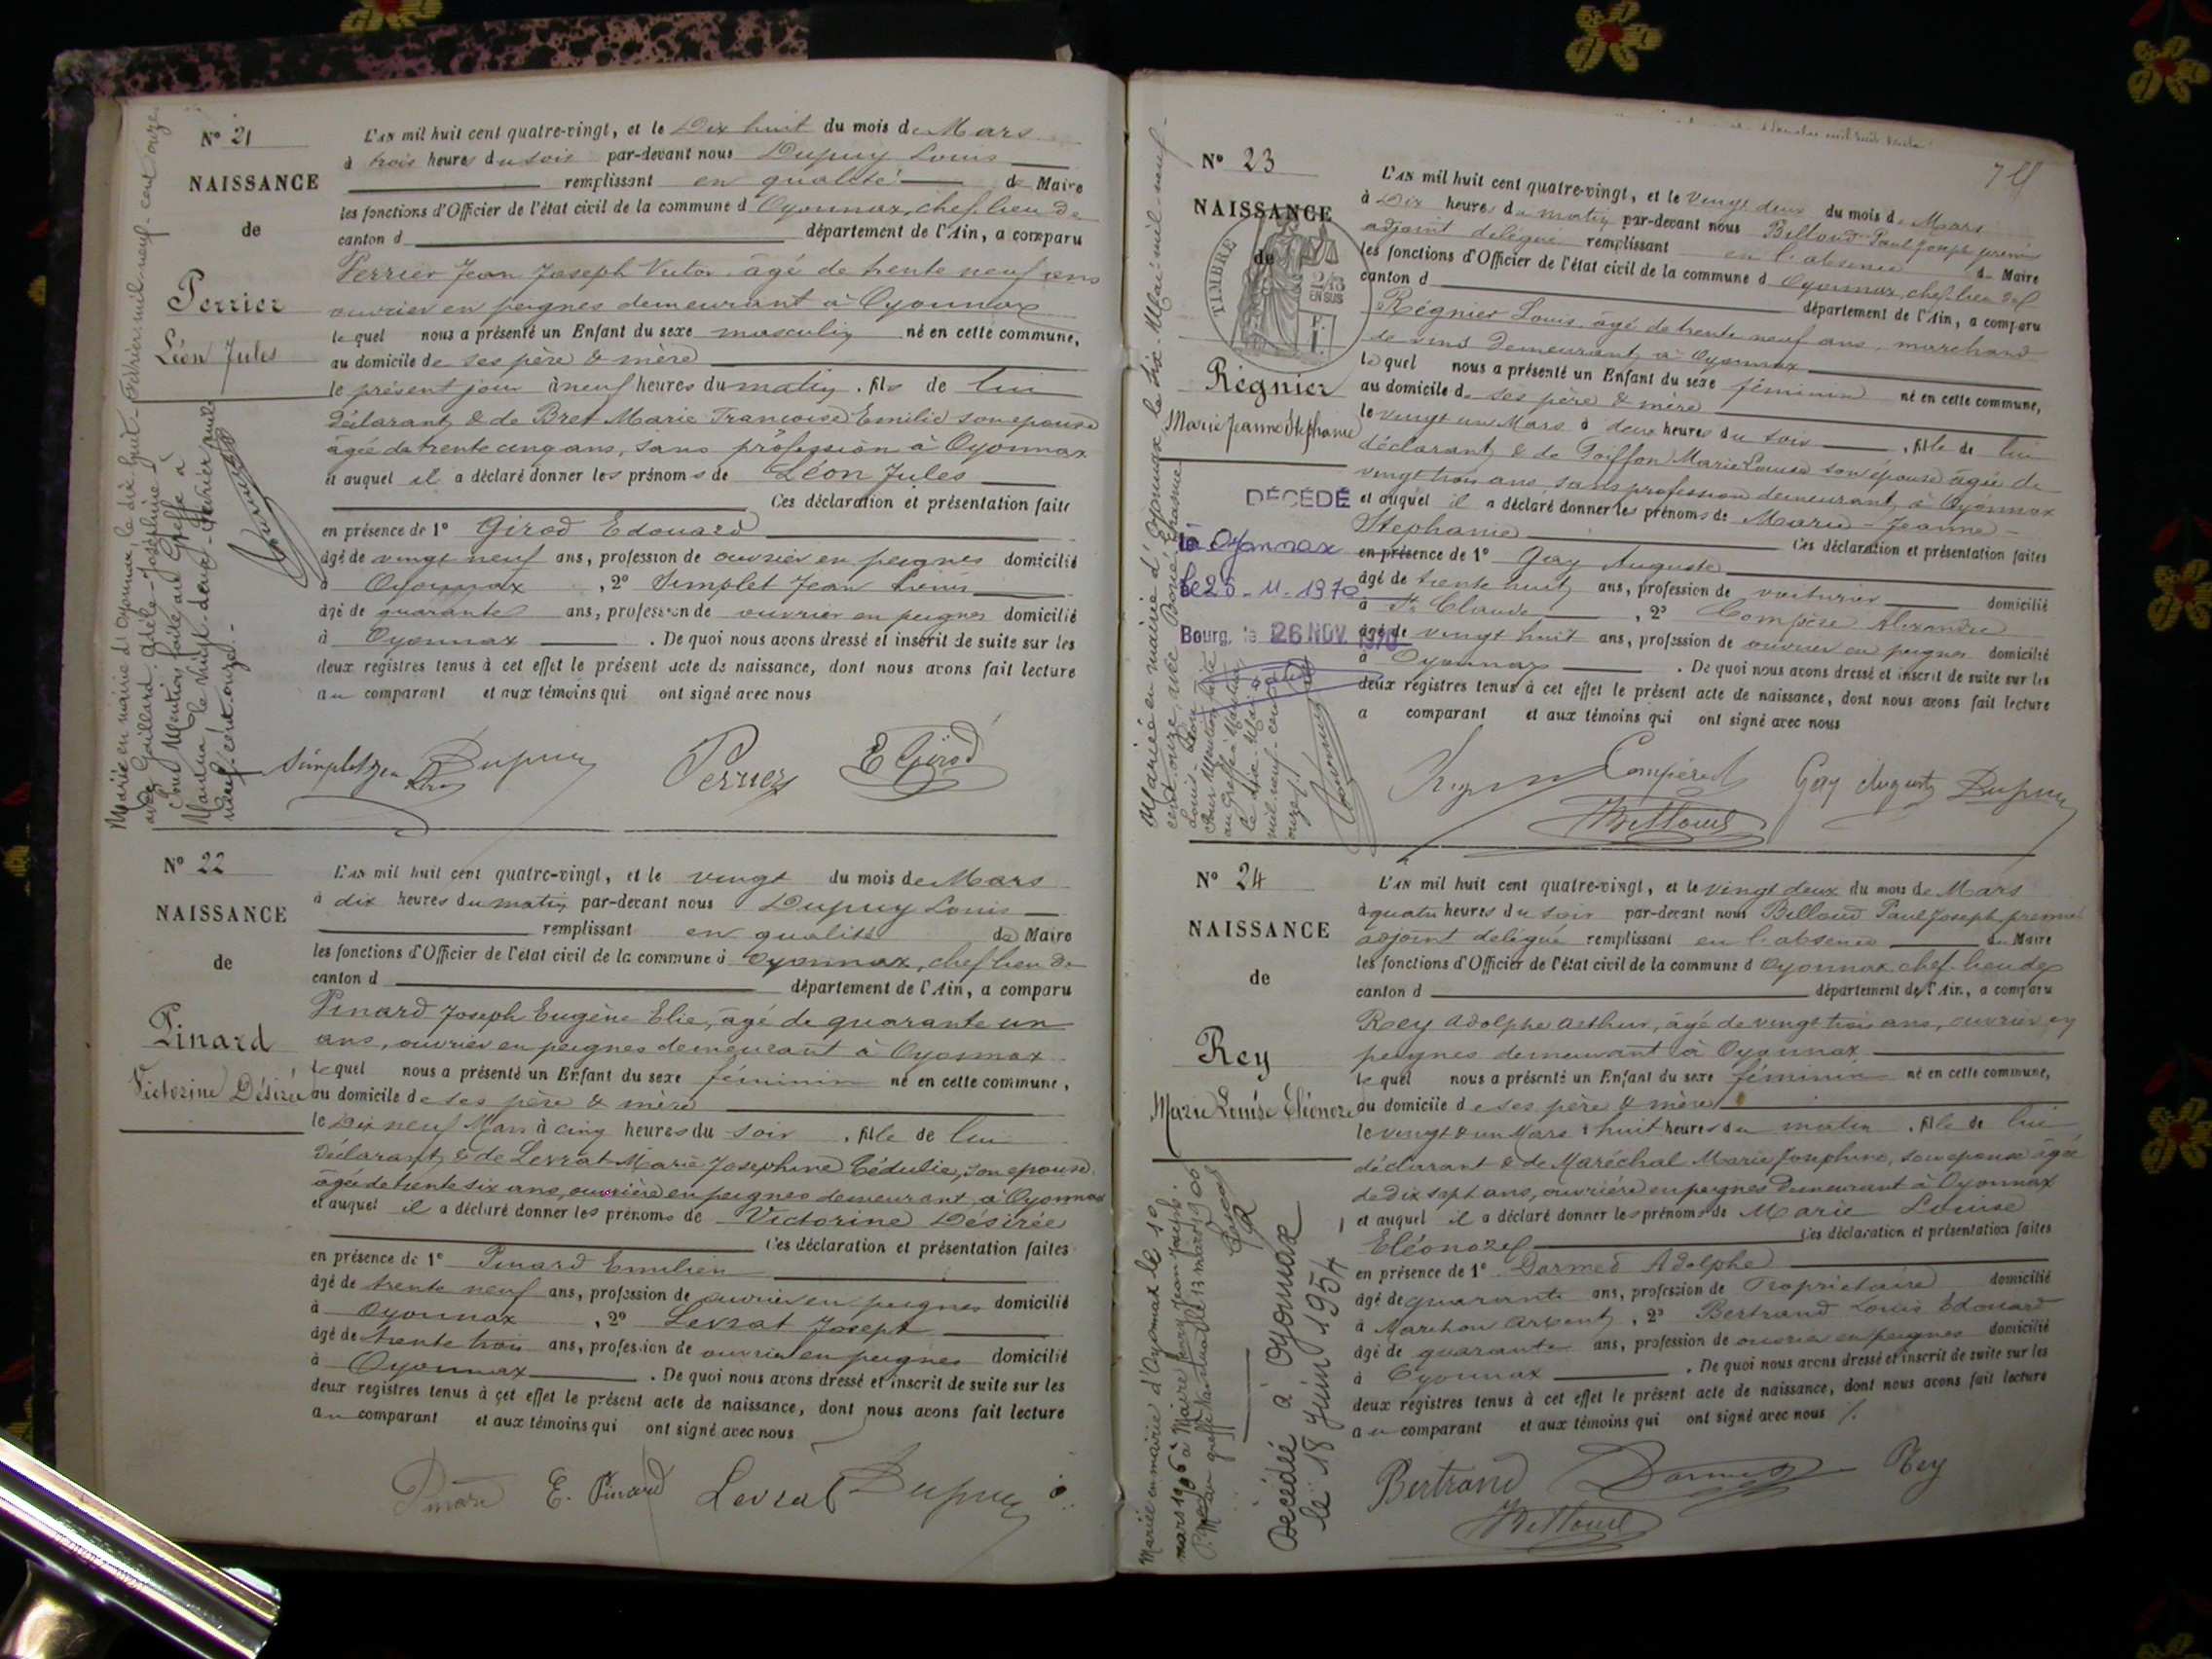 N° 21
NAISSANCE
de
Perrier
Léon Jules
L'AN mil huit cent quatre-vingt, et le Dix huit du mois de Mars
à trois heures du soir par-devant nous Dupuy Louis
remplissant en qualité de Maire
les fonctions d'Officier de l'état civil de la commune d Oyonnax, chef-lieu de
canton d département de l'Ain, a comparu
Perrier Jean Joseph Victor âgé de trente neuf ans
ouvrier en peignes demeurant à Oyonnax
lequel nous a présenté un Enfant du sexe masculin né en cette commune,
au domicile de ses père & mère
le présent jour à neuf heures du matin, fils de lui
déclarant & de Bret Marie Françoise Emilie son épouse
âgée de trente cinq ans, sans profession à Oyonnax
et auquel il a déclaré donner les prénoms de Léon Jules
Ces déclaration et présentation faites
en présence de 1° Girod Edouard
âgé de vingt neuf ans, profession de ouvrier en peignes domicilié
à Oyonnax, 2° Simplet Jean Louis
âgé de quarante ans, profession de ouvrier en peignes domicilié
à Oyonnax. De quoi nous avons dressé et inscrit de suite sur les
deux registres tenus à cet effet le présent acte de naissance, dont nous avons fait lecture
au comparant et aux témoins qui ont signé avec nous
Simplet Jean Dupuy Perrier E Girod
Marié en mairie d'Oyonnax, le dix-huit-Février-mil-neuf-cent onze
avec Gaillard Adèle-Joséphine
Pour Mention faite au Greffe à
Nantua, le vingt-deux-Février mil
neuf-cent-onze.-
N° 22
NAISSANCE
de
Pinard
Victorine Désirée
L'AN mil huit cent quatre-vingt, et le vingt du mois de Mars
à dix heures du matin par-devant nous Dupuy Louis
remplissant en qualité de Maire
les fonctions d'Officier de l'état civil de la commune d Oyonnax, chef lieu de
canton d département de l'Ain, a comparu
Pinard Joseph Eugène Elie, âgé de quarante un
ans, ouvrier en peignes demeurant à Oyonnax
lequel nous a présenté un Enfant du sexe féminin né en cette commune,
au domicile de ses père & mère
le Dix neuf Mars à cinq heures du soir, fille de lui
déclarant & de Levrat Marie Josephine Cédulie, son épouse
âgée de trente six ans, ouvrière en peignes demeurant à Oyonnax
et auquel il a déclaré donner les prénoms de Victorine Désirée
Ces déclaration et présentation faites
en présence de 1° Pinard Emilien
âgé de trente neuf ans, profession de ouvrier en peignes domicilié
à Oyonnax, 2° Levrat Joseph
âgé de trente trois ans, profession de ouvrier en peignes domicilié
à Oyonnax. De quoi nous avons dressé et inscrit de suite sur les
deux registres tenus à cet effet le présent acte de naissance, dont nous avons fait lecture
au comparant et aux témoins qui ont signé avec nous
Pinard E. Pinard Levrat Dupuy
N° 23
NAISSANCE
de
TIMBRE
2/10
EN SUS
Régnier
Marie Jeanne Stéphanie
L'AN mil huit cent quatre-vingt, et le vingt deux du mois de Mars
à Dix heures du matin par-devant nous Billoud Paul Joseph premier
adjoint délégué remplissant en l'absence du Maire
les fonctions d'Officier de l'état civil de la commune d Oyonnax, chef-lieu de
canton d département de l'Ain, a comparu
Régnier Louis âgé de trente neuf ans, marchand
de vins demeurant à Oyonnax
lequel nous a présenté un Enfant du sexe féminin né en cette commune,
au domicile de ses père & mère
le vingt un Mars à deux heures du soir, fille de lui
déclarant & de Poiffon Marie Louise son épouse âgée de
vingt trois ans sans profession demeurant à Oyonnax
et auquel il a déclaré donner les prénoms de Marie-Jeanne-
Stéphanie Ces déclaration et présentation faites
en présence de 1° Gay Auguste
âgé de trente huit ans, profession de voiturier domicilié
à St Claude, 2° Compère Alexandre
âgé de vingt huit ans, profession de ouvrier en peignes domicilié
à Oyonnax. De quoi nous avons dressé et inscrit de suite sur les
deux registres tenus à cet effet le présent acte de naissance, dont nous avons fait lecture
a comparant et aux témoins qui ont signé avec nous
Compère Gay Auguste Dupuy
Billoud
DÉCÉDÉ
à Oyonnax
le 25-11-1970
Bourg, le 26 NOV. 1970
Mariée en mairie d'Oyonnax, le dix-Mai-mil-neuf-
cent onze, avec
Pour Mention faite
au Greffe à Nantua,
mil-neuf-cent
onze
N° 24
NAISSANCE
de
Rey
Marie Louise Eléonore
L'AN mil huit cent quatre-vingt, et le vingt deux du mois de Mars
à quatre heures du soir par-devant nous Billoud Paul Joseph premier
adjoint délégué remplissant en l'absence du Maire
les fonctions d'Officier de l'état civil de la commune d Oyonnax chef-lieu de
canton d département de l'Ain, a comparu
Rey Adolphe Arthur, âgé de vingt trois ans, ouvrier en
peignes demeurant à Oyonnax
lequel nous a présenté un Enfant du sexe féminin né en cette commune,
au domicile de ses père & mère
le vingt & un Mars à huit heures du matin, fille de lui
déclarant & de Maréchal Marie Josephine, son épouse âgée
de dix sept ans, ouvrière en peignes demeurant à Oyonnax
et auquel il a déclaré donner les prénoms de Marie Louise
Eléonore Ces déclaration et présentation faites
en présence de 1° Dormed Adolphe
âgé de quarante ans, profession de Propriétaire domicilié
à Marchon Arbent, 2° Bertrand Louis Edouard
âgé de quarante ans, profession de ouvrier en peignes domicilié
à Oyonnax. De quoi nous avons dressé et inscrit de suite sur les
deux registres tenus à cet effet le présent acte de naissance, dont nous avons fait lecture
au comparant et aux témoins qui ont signé avec nous
Bertrand Rey
Billoud
Mariée en mairie d'Oyonnax le 10
mars 1906 à Jean Joseph.
Décédée à Oyonnax
le 18 Juin 1954